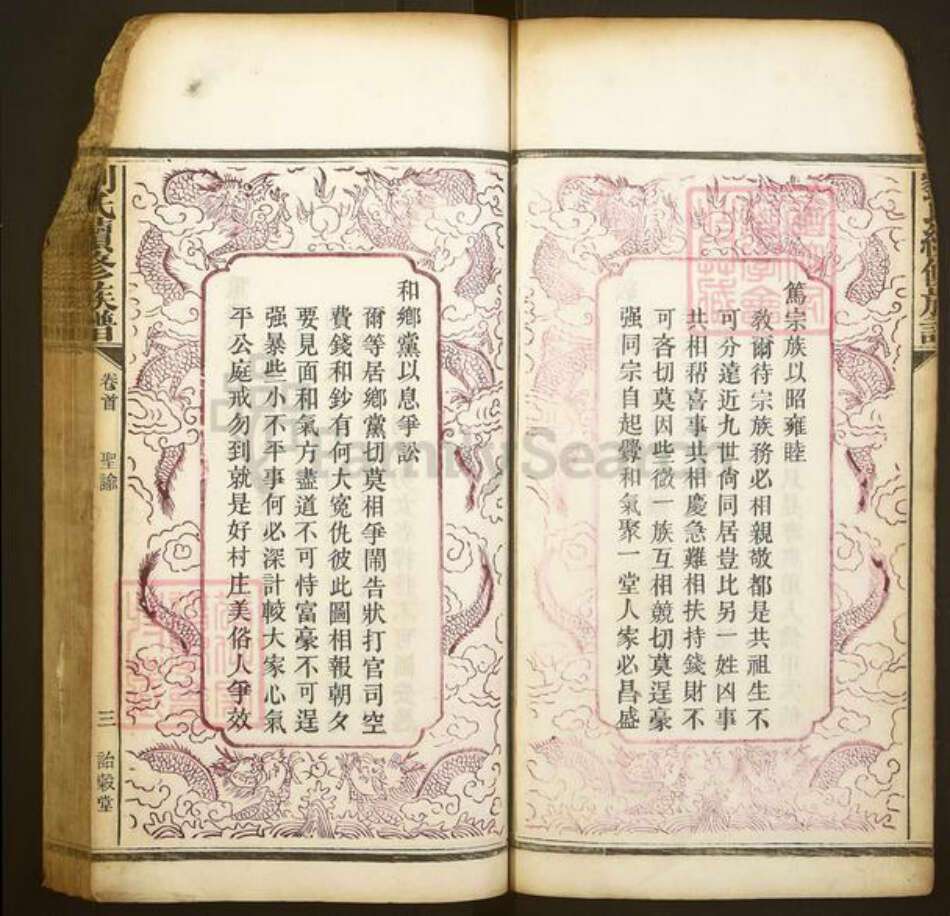 篤宗族以昭雍睦
教爾待宗族務必相親敬都是共祖生不
可分遠近九世尙同居豈比另一姓凶事
共相帮喜事共相慶急難相扶持錢財不
可吝切莫因些微一族互相競切莫逞豪
强同宗自起釁和氣聚一堂人家必昌盛
和鄉黨以息爭訟
爾等居鄉黨切莫相爭鬧告狀打官司空
費錢和鈔有何大寃仇彼此圖相報朝夕
要見面和氣方盡道不可恃富豪不可逞
强暴些小不平事何必深計較大家心氣
平公庭戒勿到就是好村庄美俗人爭效
劉氏續修族譜
卷首
聖諭
三
詒穀堂
FamilySearch